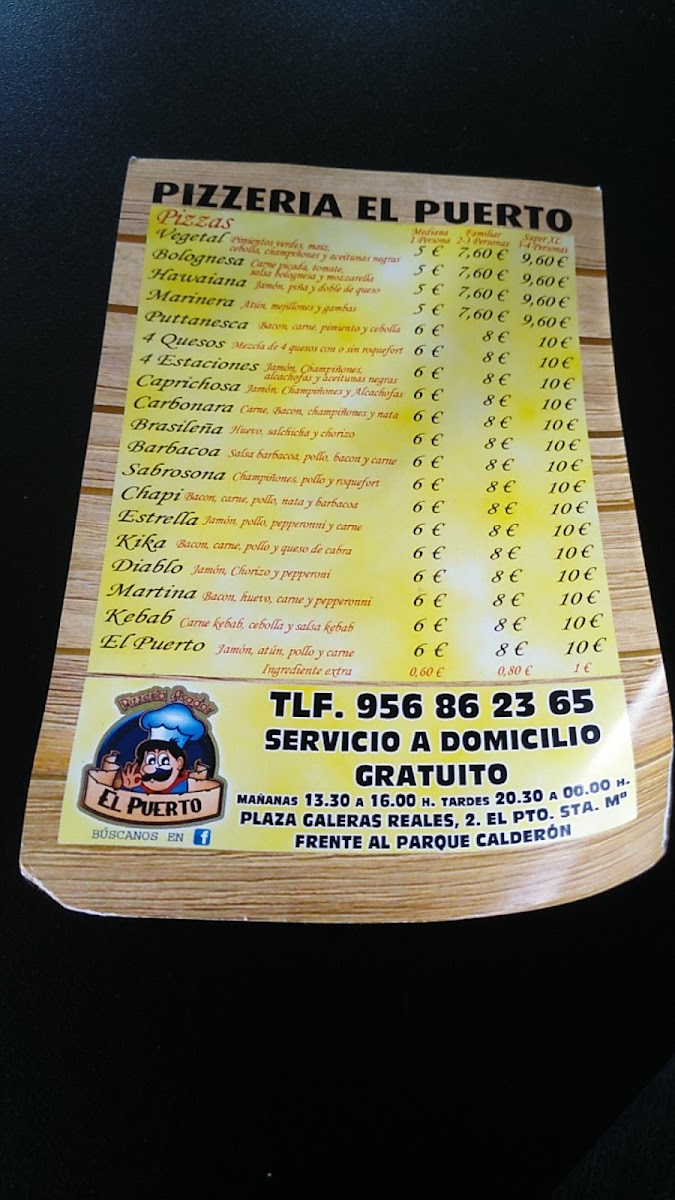 PIZZERIA EL PUERTO
Pizzas
Mediana 1 Persona
Familiar 2-3 Personas
Super XL 3-4 Personas
Vegetal Pimientos verdes, maiz, cebolla, champiñones y aceitunas negras 5 € 7,60 € 9,60 €
Bolognesa Carne picada, tomate, salsa bolognesa y mozzarella 5 € 7,60 € 9,60 €
Hawaiana Jamón, piña y doble de queso 5 € 7,60 € 9,60 €
Marinera Atún, mejillones y gambas 5 € 7,60 € 9,60 €
Puttanesca Bacon, carne, pimiento y cebolla 6 € 8 € 10 €
4 Quesos Mezcla de 4 quesos con o sin roquefort 6 € 8 € 10 €
4 Estaciones Jamón, Champiñones, alcachofas y aceitunas negras 6 € 8 € 10 €
Caprichosa Jamón, Champiñones y Alcachofas 6 € 8 € 10 €
Carbonara Carne, Bacon, champiñones y nata 6 € 8 € 10 €
Brasileña Huevo, salchicha y chorizo 6 € 8 € 10 €
Barbacoa Salsa barbacoa, pollo, bacon y carne 6 € 8 € 10 €
Sabrosona Champiñones, pollo y roquefort 6 € 8 € 10 €
Chapi Bacon, carne, pollo, nata y barbacoa 6 € 8 € 10 €
Estrella Jamón, pollo, pepperonni y carne 6 € 8 € 10 €
Kika Bacon, carne, pollo y queso de cabra 6 € 8 € 10 €
Diablo Jamón, Chorizo y pepperoni 6 € 8 € 10 €
Martina Bacon, huevo, carne y pepperonni 6 € 8 € 10 €
Kebab Carne kebab, cebolla y salsa kebab 6 € 8 € 10 €
El Puerto Jamón, atún, pollo y carne 6 € 8 € 10 €
Ingrediente extra 0,60 € 0,80 € 1 €
Pizzeria Asador
EL PUERTO
BÚSCANOS EN f
TLF. 956 86 23 65
SERVICIO A DOMICILIO
GRATUITO
MAÑANAS 13.30 A 16.00 H. TARDES 20.30 A 00.00 H.
PLAZA GALERAS REALES, 2. EL PTO. STA. Mª
FRENTE AL PARQUE CALDERÓN